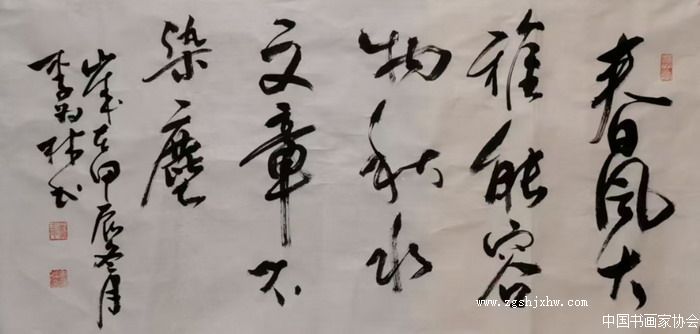 春風大
雅能容
物秋水
文章不
染塵
歲在甲辰冬月
李
书
www.zgshjxhw.com
中国书画家协会